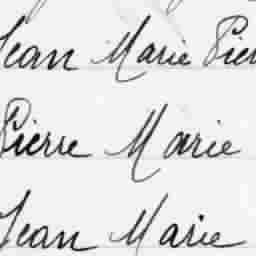 Jean Marie Pier
Pierre Marie
Jean Marie